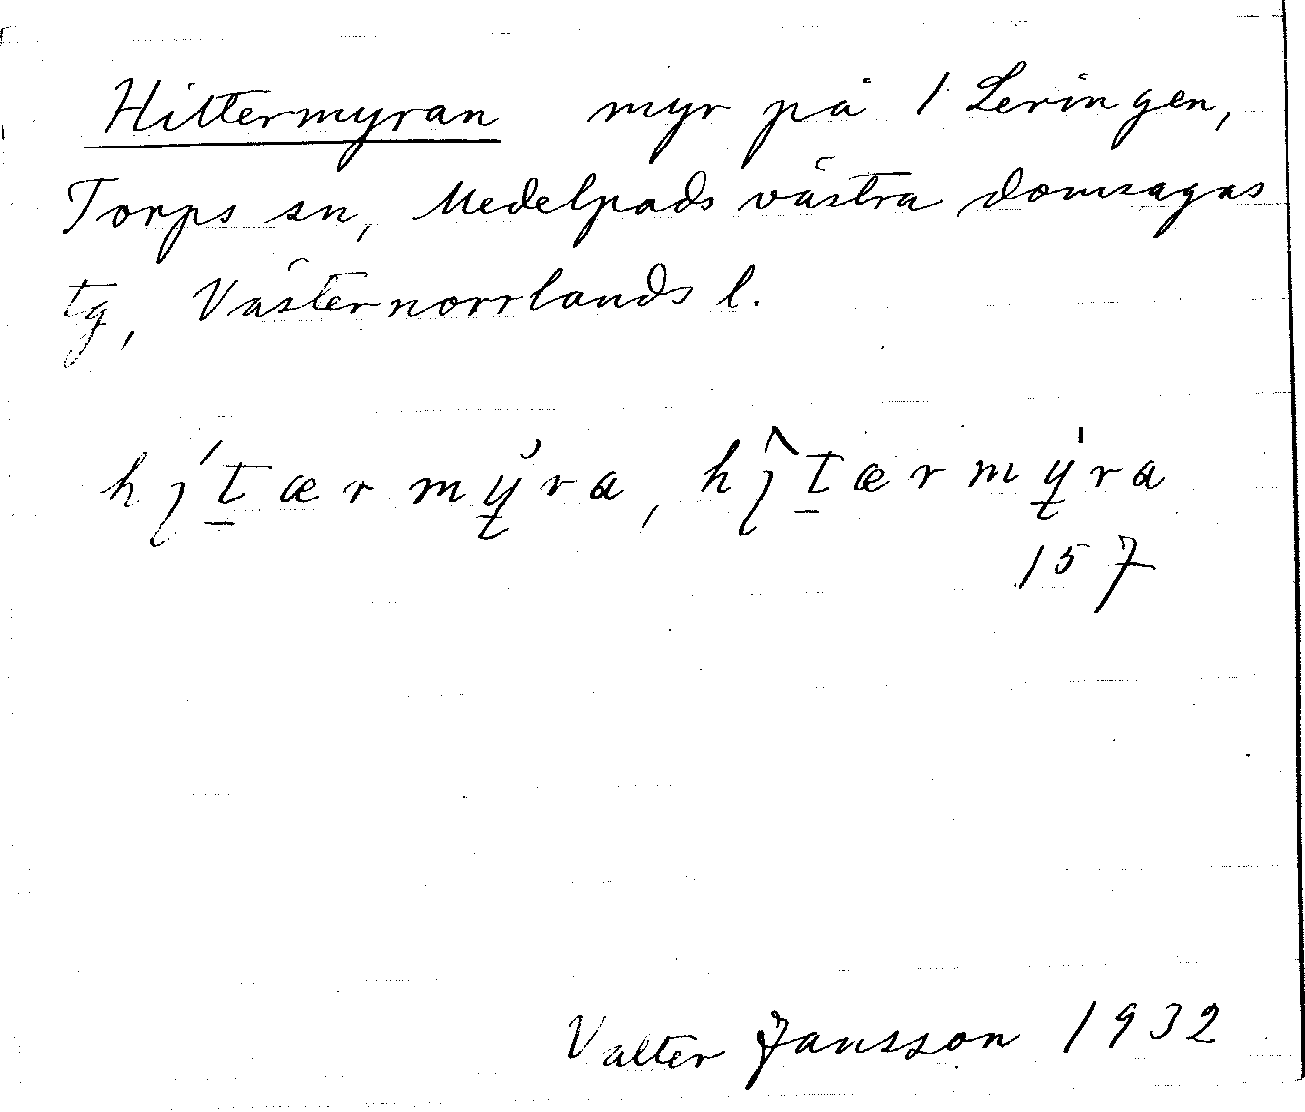 Hittermyran myr på 1 Leringen,
Torps sn, Medelpads västra domsagas
tg, Västernorrlands l.
hı́t̲ærmy̌ra, hı̂t̲ærmy̍ra
157
Valter Jansson 1932